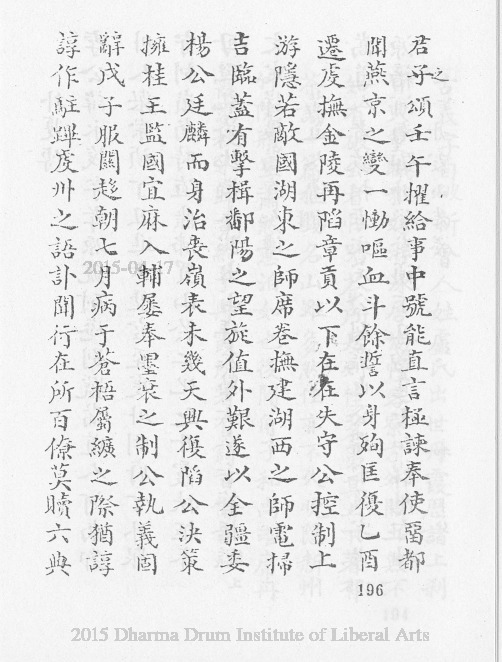 君子之頌壬午擢給事中號能直言極諫奉使畱都
聞燕京之變一慟嘔血斗餘誓以身殉匡復乙酉
遷虔撫金陵再陷章貢以下在在失守公控制上
游隱若敵國湖東之師席卷撫建湖西之師電掃
吉臨蓋有擊楫鄱陽之望旋值外艱遂以全疆委
楊公廷麟而身治喪嶺表未幾天興復陷公決策
擁桂王監國宜麻入輔屢奉墨衰之制公執義固
辭戊子服闋趍朝七月病于蒼梧屬纊之際猶諄
諄作駐蹕虔州之語訃聞行在所百僚莫贖六典
196
2015-04-17
2015 Dharma Drum Institute of Liberal Arts